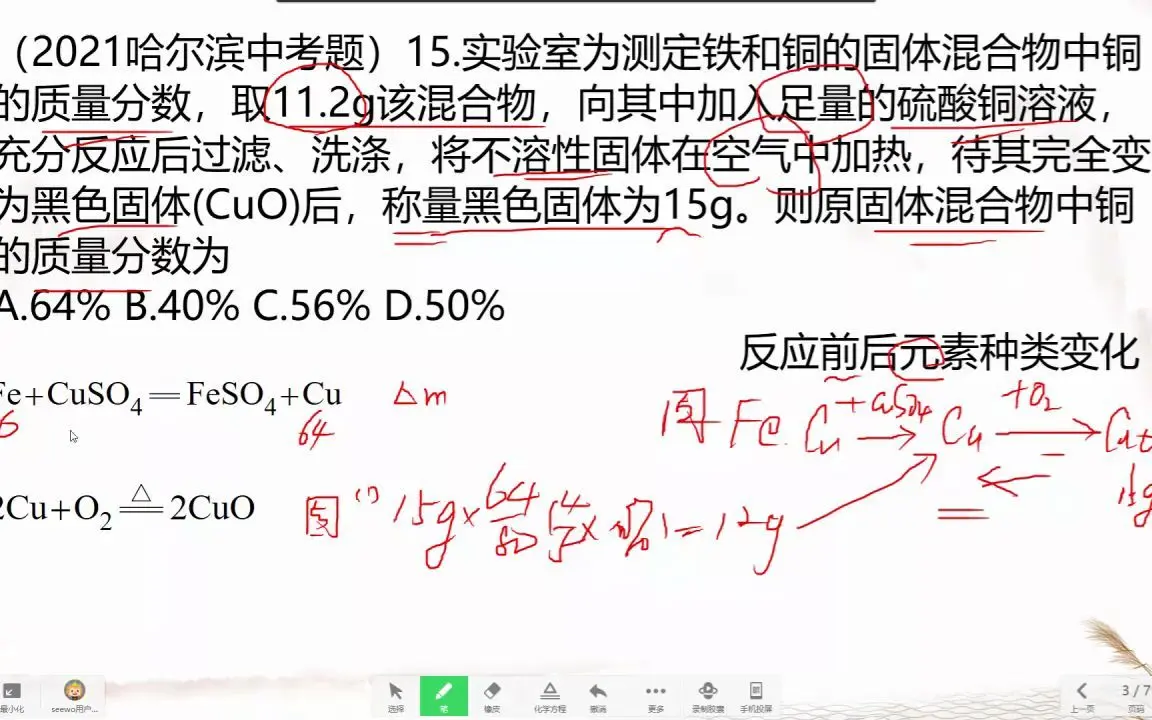 （2021哈尔滨中考题）15.实验室为测定铁和铜的固体混合物中铜
的质量分数，取11.2g该混合物，向其中加入足量的硫酸铜溶液，
充分反应后过滤、洗涤，将不溶性固体在空气中加热，待其完全变
为黑色固体(CuO)后，称量黑色固体为15g。则原固体混合物中铜
的质量分数为
A.64% B.40% C.56% D.50%
反应前后元素种类变化
Fe+CuSO₄═FeSO₄+Cu △m
64
固 Fe Cu +CuSO4 → Cu +O2 →
2Cu+O₂ △ ═ 2CuO
固 (1) 15g× 64/80 (4/5 × %) = 12g
最小化
seewo用户...
选择
笔
橡皮
化学方程
撤消
更多
录制胶囊
手机投屏
上一页
3 / 7
页码